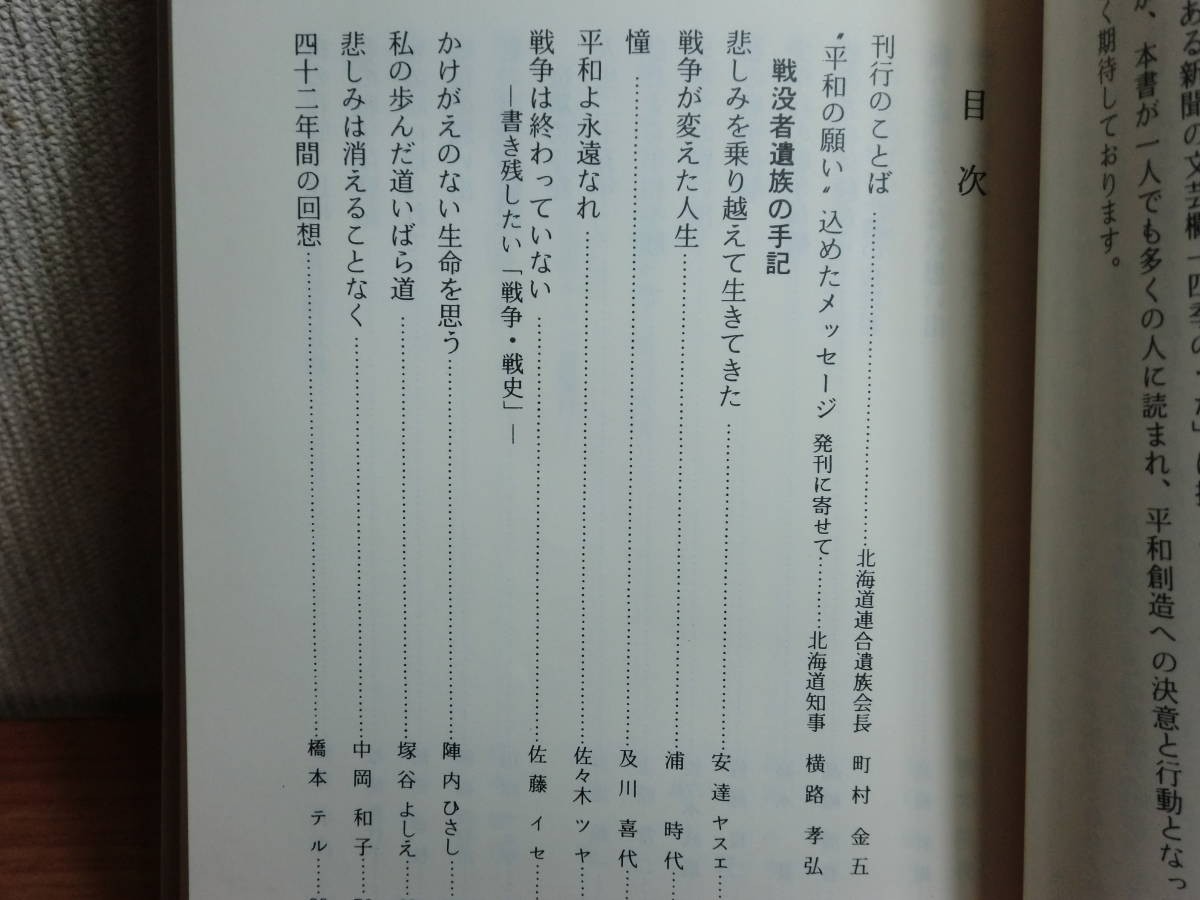 ある新聞の文芸欄「四季のうた」は
が、本書が一人でも多くの人に読まれ、平和創造への決意と行動となっ
く期待しております。
目次
刊行のことば……北海道連合遺族会長 町村金五
〝平和の願い〟込めたメッセージ 発刊に寄せて……北海道知事 横路孝弘
戦没者遺族の手記
悲しみを乗り越えて生きてきた……安達ヤスエ……
戦争が変えた人生……浦時代……
憧……及川喜代……
平和よ永遠なれ……佐々木ツヤ……
戦争は終わっていない……佐藤イセ……
―書き残したい「戦争・戦史」―
かけがえのない生命を思う……陣内ひさし……
私の歩んだ道いばら道……塚谷よしえ……
悲しみは消えることなく……中岡和子……
四十二年間の回想……橋本テル……